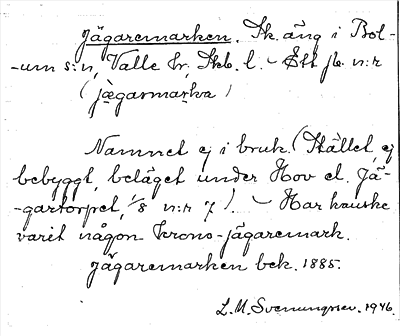 Jägaremarken. Sk. äng i Bol-
-um s:n, Valle hr, Skb. l. – Ett jb. n:r
(jägarmarka)
Namnet ej i bruk. (Stället, ej
bebyggt, beläget under Hov el. Jä-
-gartorpet, 1/8 n:r 7). – Har kanske
varit någon krono-jägaremark.
Jägaremarken bek. 1885.
L.M. Svenungsson. 1946.